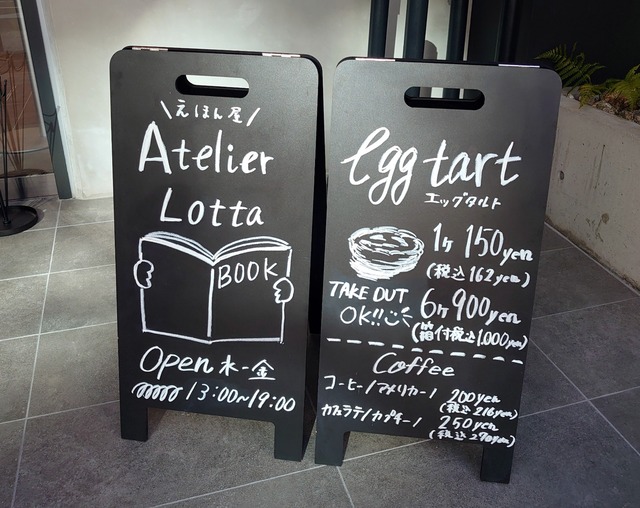 \えほん屋/
Atelier
Lotta
BOOK
Open 水-金
13:00~19:00
Egg tart
エッグタルト
1ヶ 150yen
(税込162yen)
TAKE OUT
OK!!
6ヶ 900yen
(箱付税込1.000yen)
Coffee
コーヒー/アメリカーノ 200yen
(税込216yen)
カフェラテ/カプチーノ 250yen
(税込270yen)